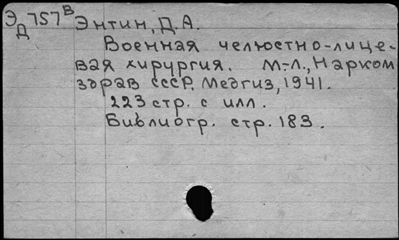 Э 757в Энтин, Д.А.
Д
Военная челюстно-лице-
вая хирургия. М.-Л., Нарком
здрав СССР. Медгиз, 1941.
223 стр. с илл.
Библиогр. стр. 183.